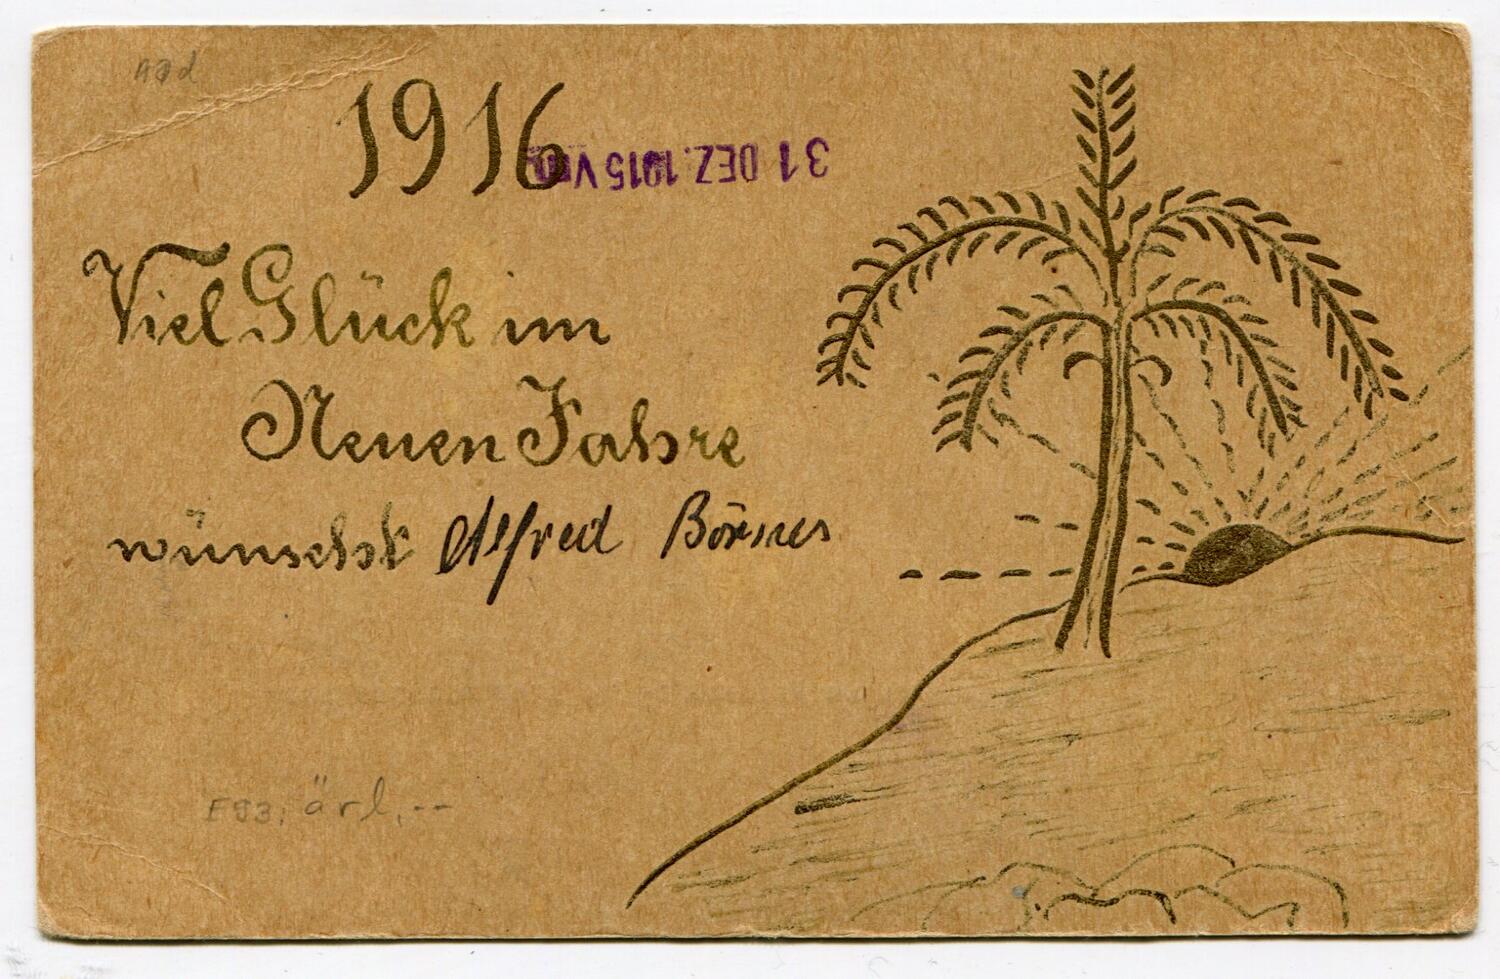 1916
31 DEZ. 1915 V
Viel Glück im
Neuen Jahre
wünscht AlfredCörner